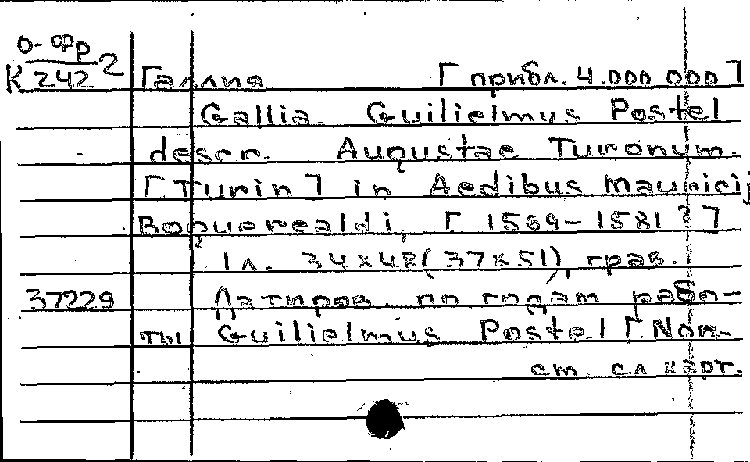 О-Фр
К 242 2
Галлия [прибл. 4.000 000]
Gallia. Guilielmus Postel
descr. Augustae Turonum.
[Turin] in Aedibus Mauricij
[1569-1581?]
1 л. 34x48(37x51), грав.
37229
Датиров. по годам рабо-
ты Guilielmus Postel [Non-
см. сл карт.